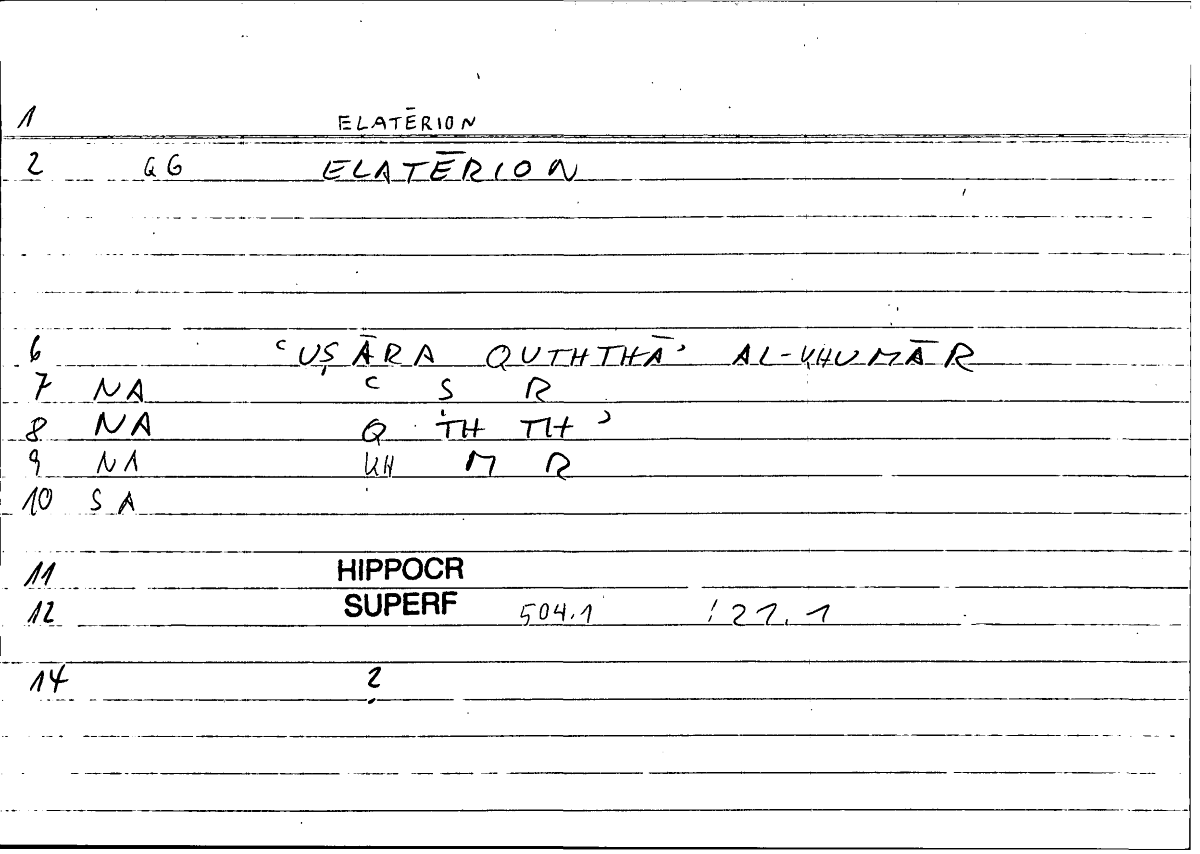 1 ELATĒRION
2 GG ELATĒRION
6 ʿUṢĀRA QUTHTHĀʾ AL-KHUMĀR
7 NA ʿ Ṣ R
8 NA Q TH TH ʾ
9 NA KH M R
10 SA
11 HIPPOCR
12 SUPERF 504.1 !27.1
14 ?